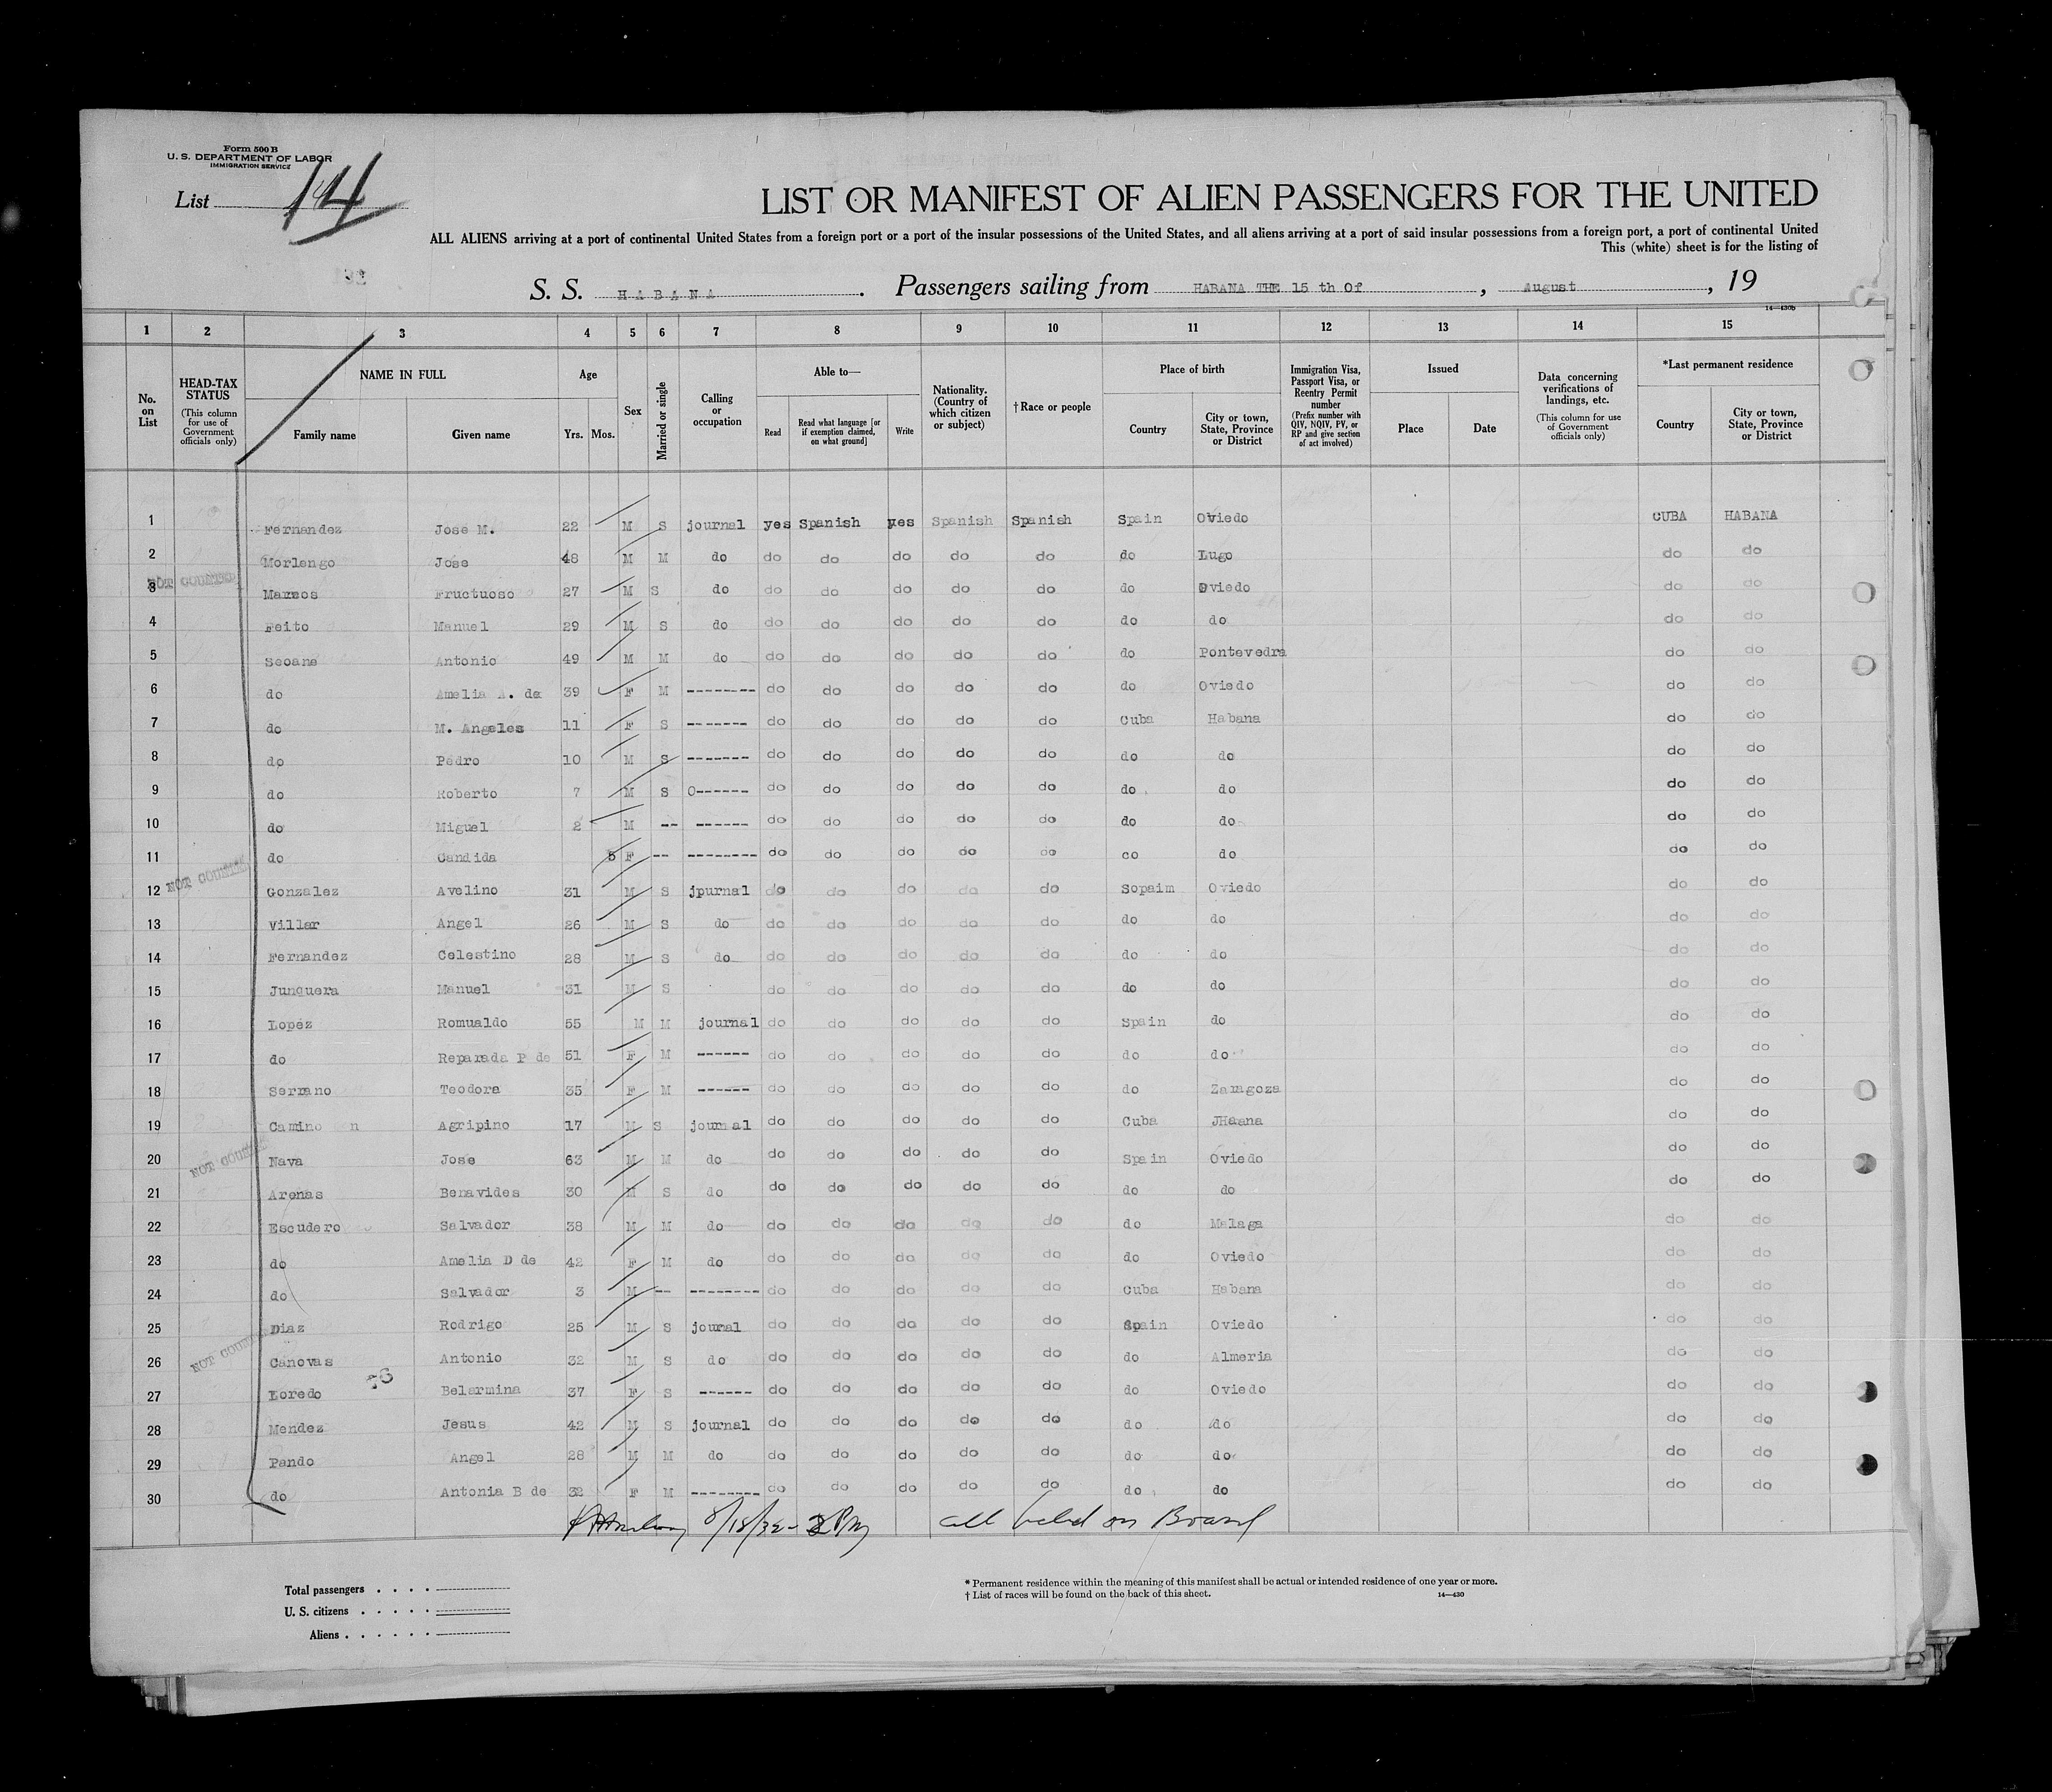 Form 500 B
U. S. DEPARTMENT OF LABOR
IMMIGRATION SERVICE
List 14
LIST OR MANIFEST OF ALIEN PASSENGERS FOR THE UNITED
ALL ALIENS arriving at a port of continental United States from a foreign port or a port of the insular possessions of the United States, and all aliens arriving at a port of said insular possessions from a foreign port, a port of continental United
This (white) sheet is for the listing of
S. S. HABANA. Passengers sailing from HABANA THE 15 th Of, August, 19
14—430b
1 2 3 4 5 6 7 8 9 10 11 12 13 14 15
No. on List
HEAD-TAX STATUS (This column for use of Government officials only)
NAME IN FULL
Family name Given name
Age
Yrs. Mos.
Sex
Married or single
Calling or occupation
Able to—
Read Read what language [or if exemption claimed, on what ground] Write
Nationality. (Country of which citizen or subject)
†Race or people
Place of birth
Country City or town, State, Province or District
Immigration Visa, Passport Visa, or Reentry Permit number (Prefix number with QIV, NQIV, PV, or RP and give section of act involved)
Issued
Place Date
Data concerning verifications of landings, etc. (This column for use of Government officials only)
*Last permanent residence
Country City or town, State, Province or District
1 Fernandez Jose M. 22 M S journal yes Spanish yes Spanish Spanish Spain Oviedo CUBA HABANA
2 Morlengo Jose 48 M M do do do do do do do Lugo do do
NOT COUNTED
3 Marcos Fructuoso 27 M S do do do do do do do Oviedo do do
4 Feito Manuel 29 M S do do do do do do do do do do
5 Seoane Antonio 49 M M do do do do do do do Pontevedra do do
6 do Amelia A. de 39 F M -------- do do do do do do Oviedo do do
7 do M. Angeles 11 F S ------- do do do do do Cuba Habana do do
8 do Pedro 10 M S ------- do do do do do do do do do
9 do Roberto 7 M S O------ do do do do do do do do do
10 do Miguel 2 M -- ------ do do do do do do do do do
11 do Candida 5 F -- -------- do do do do do co do do do
NOT COUNTED
12 Gonzalez Avelino 31 M S jpurnal do do do do do Sopaim Oviedo do do
13 Villar Angel 26 M S do do do do do do do do do do
14 Fernandez Celestino 28 M S do do do do do do do do do do
15 Junquera Manuel 31 M S do do do do do do do do do
16 Lopez Romualdo 55 M M journal do do do do do Spain do do do
17 do Reparada P de 51 F M ------ do do do do do do do do do
18 Serrano Teodora 35 F M ------ do do do do do do Zaragoza do do
19 Camino n Agripino 17 M S journal do do do do do Cuba JHaana do do
NOT COUNTED
20 Nava Jose 63 M M do do do do do do Spain Oviedo do do
21 Arenas Benavides 30 M S do do do do do do do do do do
22 Escudero Salvador 38 M M do do do do do do do Malaga do do
23 do Amelia D de 42 F M do do do do do do do Oviedo do do
24 do Salvador 3 M -- -------- do do do do do Cuba Habana do do
25 Diaz Rodrigo 25 M S jounal do do do do do Spain Oviedo do do
NOT COUNTED
26 Canovas Antonio 32 M S do do do do do do do Almeria do do
27 Loredo Belarmina 37 F S ------ do do do do do do Oviedo do do
28 Mendez Jesus 42 M S journal do do do do do do do do do
29 Pando Angel 28 M M do do do do do do do do do do
30 do Antonia B de 32 F M -------- do do do do do do do do do
8/18/32 - 2 PM all held on Board
Total passengers
U. S. citizens
Aliens
* Permanent residence within the meaning of this manifest shall be actual or intended residence of one year or more.
† List of races will be found on the back of this sheet. 14—430